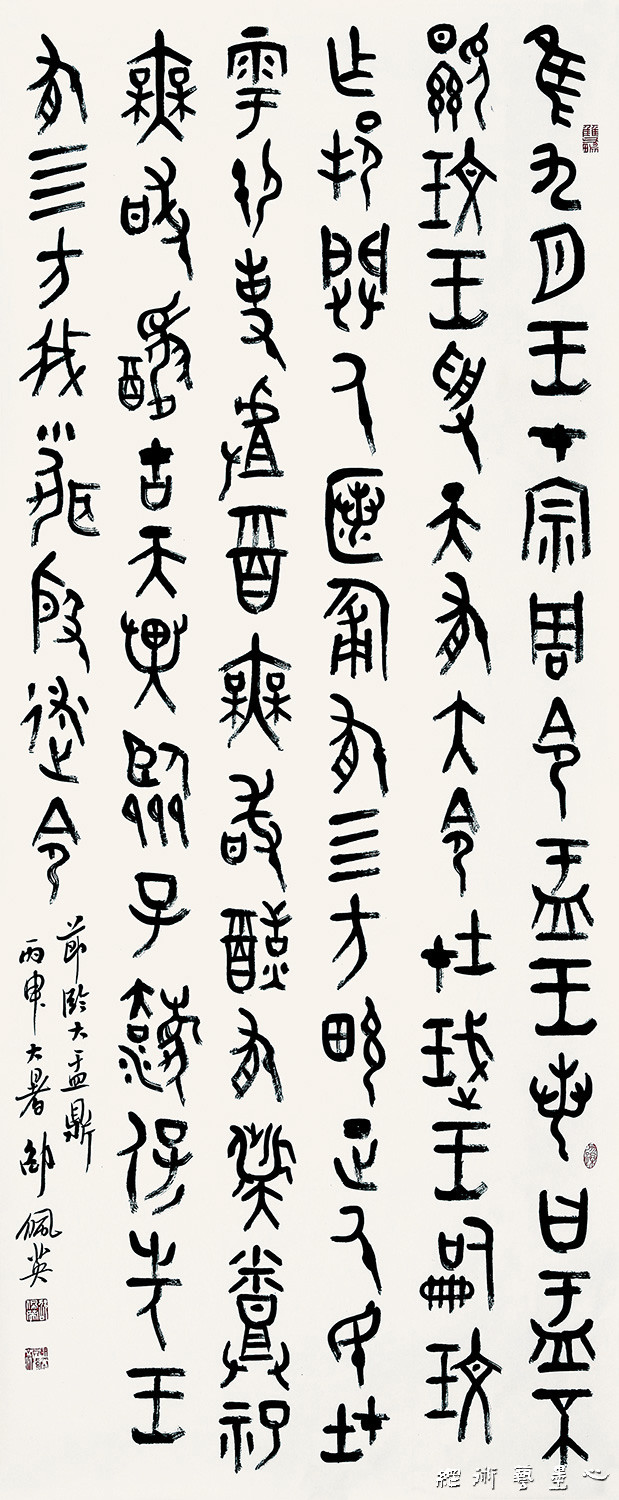 隹九月王才宗周令盂王若曰盂不
顯玟王受天有大令在珷王嗣玟
乍邦闢氒匿匍有四方畯正氒民在
雩御事䖒酉無敢酖有祡烝祀
無敢古天異臨子灋保先王
有四方我聞殷述令
節臨大盂鼎
丙申大暑 邵佩英